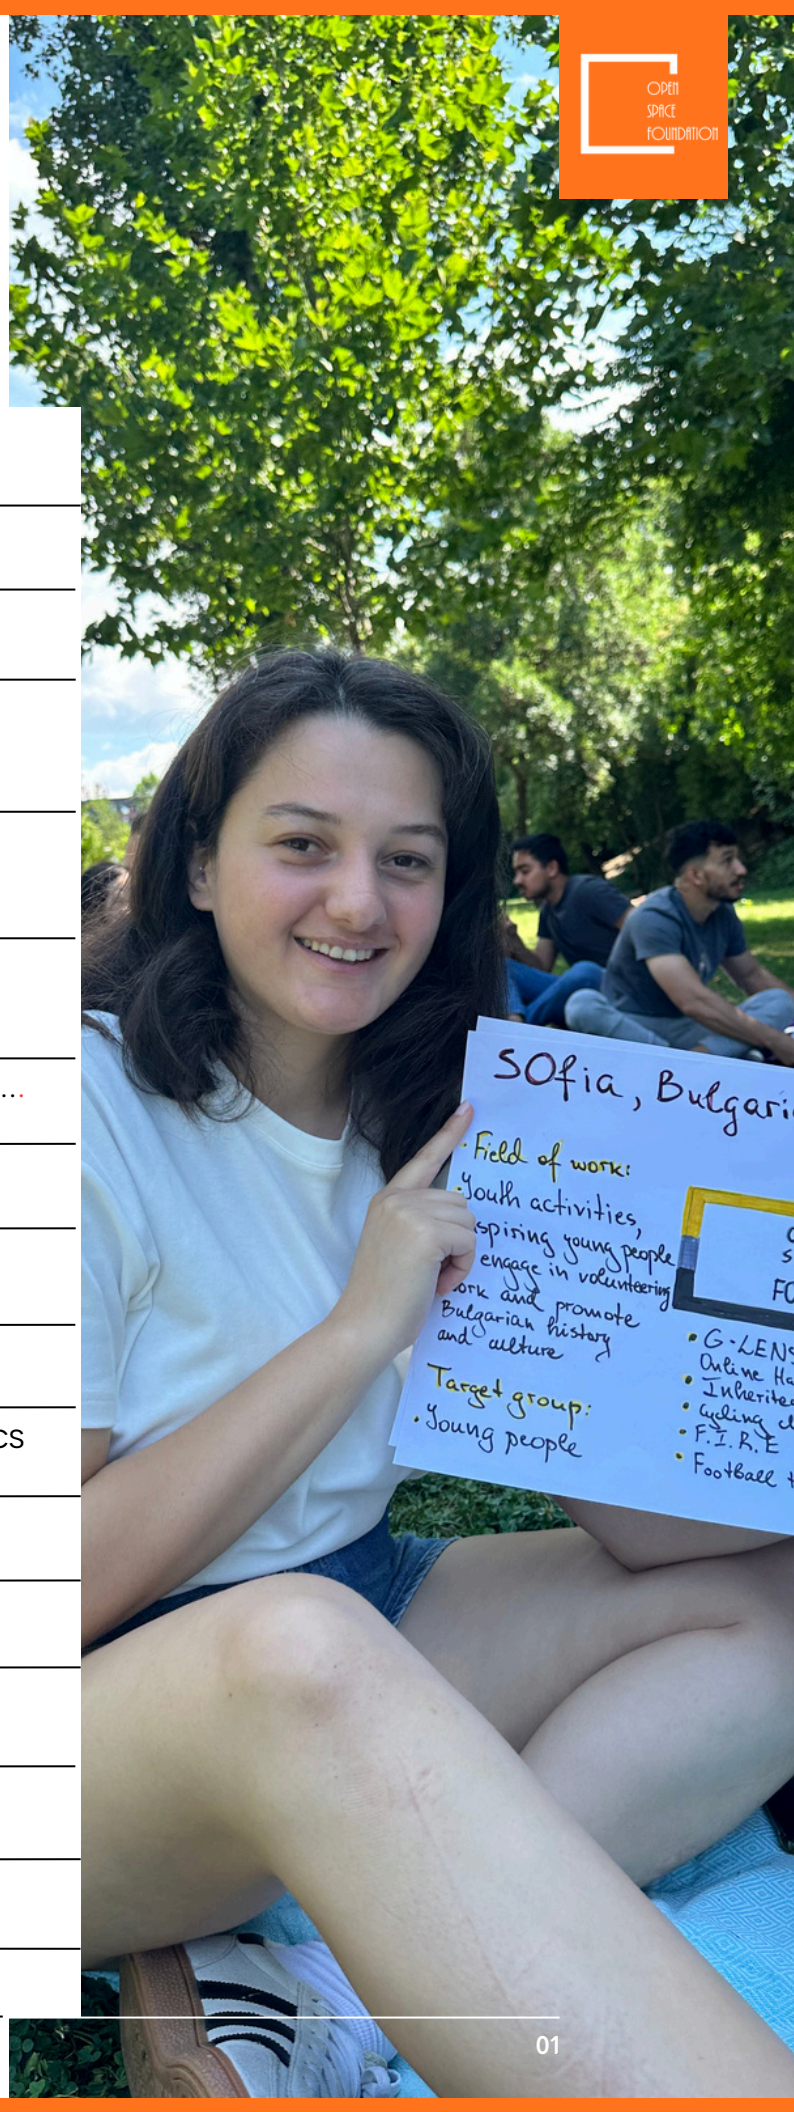 OPEN
SPACE
FOUNDATION
...
CS
SOfia, Bulgaria
• Field of work:
• Youth activities,
engage in volunteering
and promote
Bulgarian history
and culture
Target group:
• Young people
FO
• G-LENS
Online Ha
• Inherite
• Cycling
• F.I.R.E
• Football
01